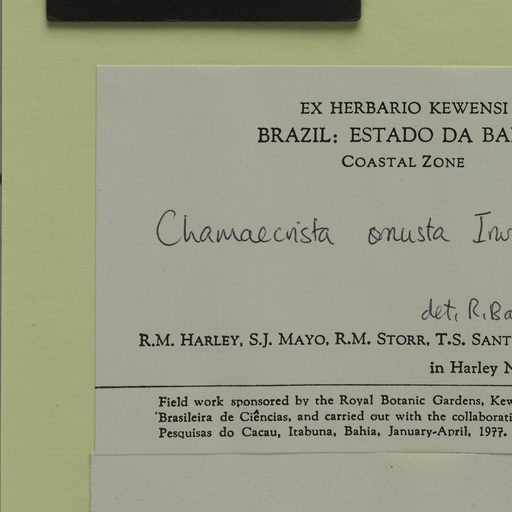 EX HERBARIO KEWENSI
BRAZIL: ESTADO DA BA
COASTAL ZONE
Chamaecrista onusta Irw
det. R.Ba
R.M. HARLEY, S.J. MAYO, R.M. STORR, T.S. SANT
in Harley N
Field work sponsored by the Royal Botanic Gardens, Kew
'Brasileira de Ciências, and carried out with the collaborati
Pesquisas do Cacau, Itabuna, Bahia, January-April, 1977.